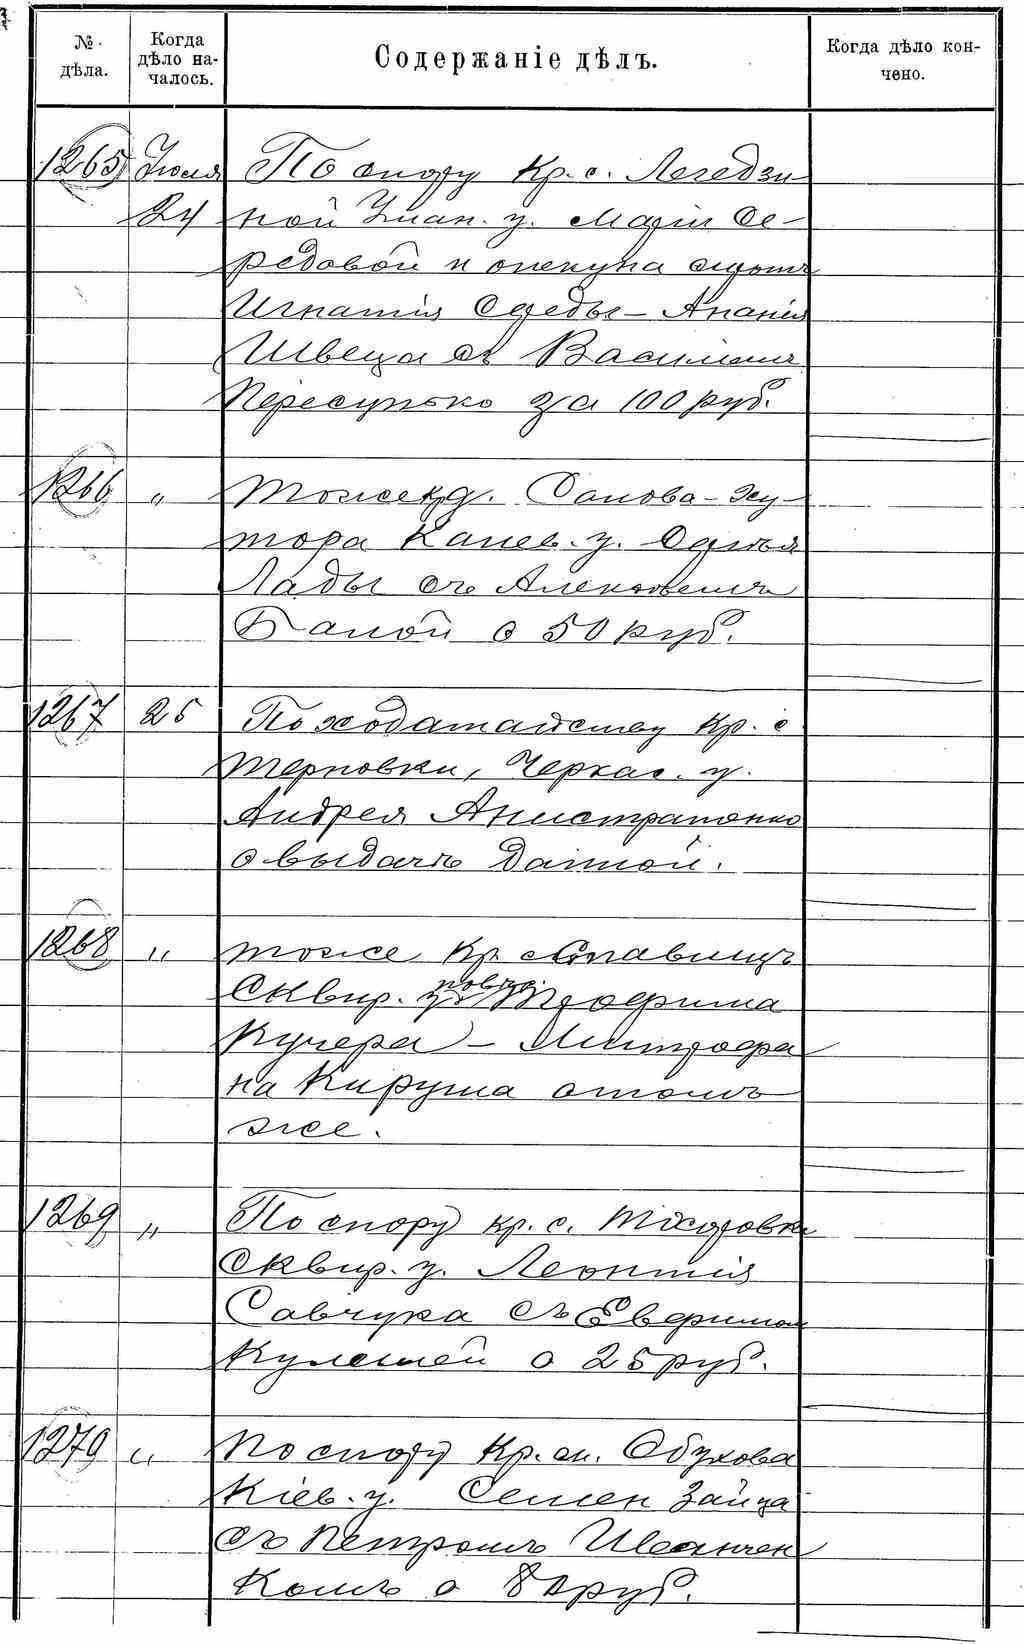 № дѣла.
Когда дѣло началось.
Содержаніе дѣлъ.
Когда дѣло кончено.
1265 Іюля По спору кр. с. Легедзи
24 ной Уман. у. Маріи Се-
редовой и опекуна сиротъ
Игнатія Середы - Ананія
Швеца съ Василіемъ
Пересунько за 100 руб.
1266 " тоже кр. д. Попова-Ху-
тора Канев. у.
Лады съ Алексѣемъ
Балой о 50 руб.
1267 25 По ходатайству кр. с.
Терновки, Черкас. у.
Андрея Анистратенко
о выдачѣ данной.
1268 " тоже кр. Ставищъ
Сквир. у. Трофима
Кучера - Митрофа
на Кируша о томъ
же.
1269 " По спору кр. с. Тхоровки
Сквир. у. Леонтія
Савчука съ Евфиміей
Кулешей о 25 руб.
1270 " По спору кр. м. Обухова
Кіев. у. Семен Зайца
съ Петромъ Иванчен
комъ о 80 руб.